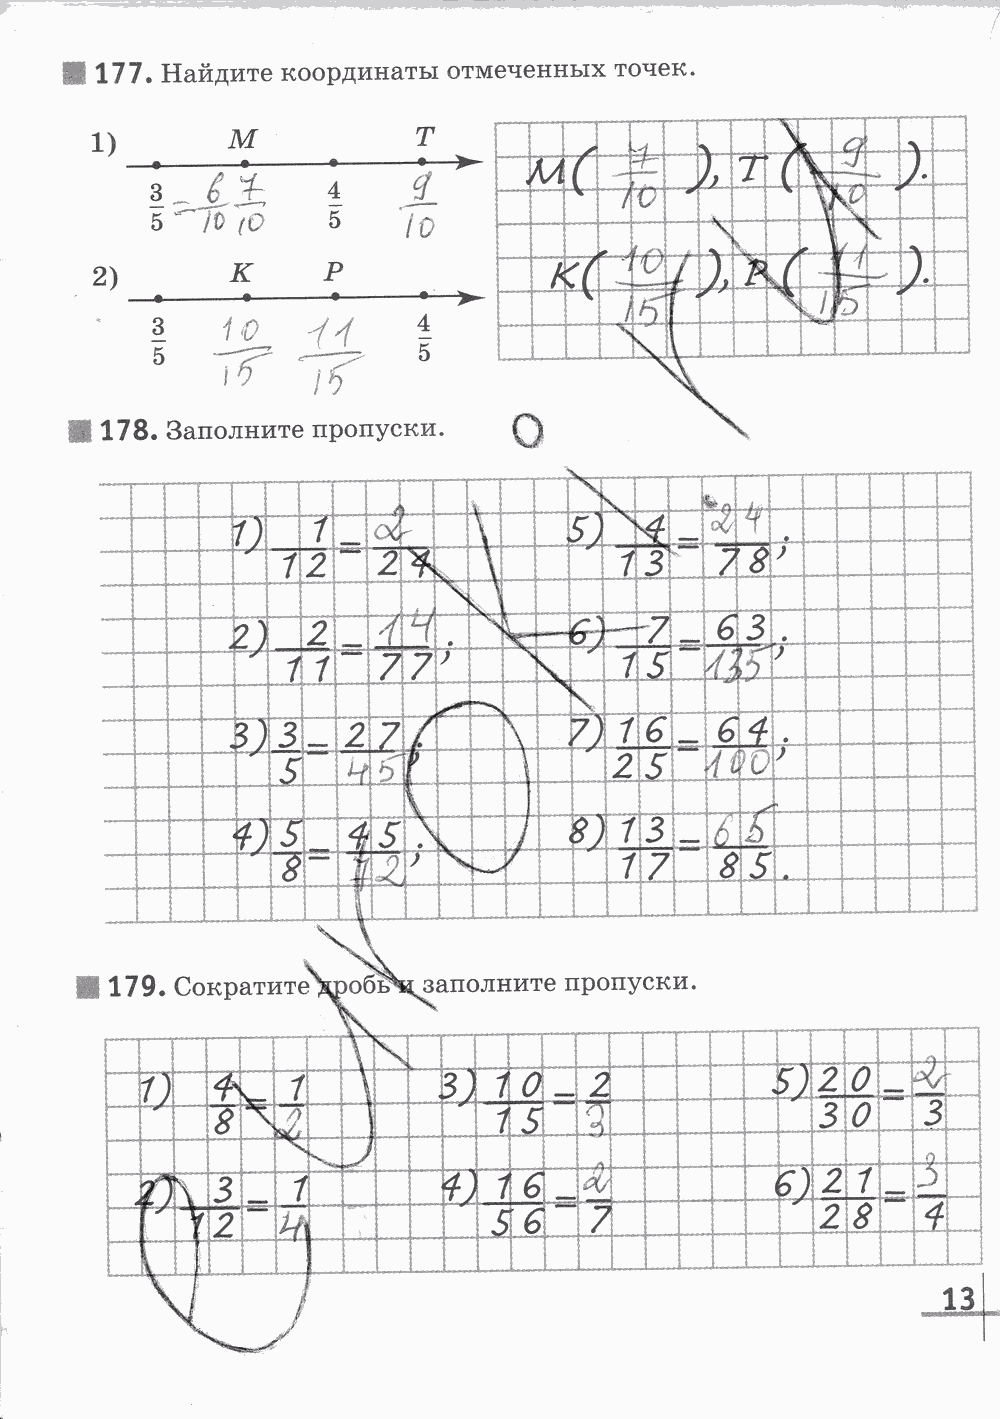 177. Найдите координаты отмеченных точек.
1) M T
3/5 = 6/10 7/10 4/5 9/10
M( 7/10 ), T ( 9/10 ).
2) K P
3/5 10/15 11/15 4/5
K( 10/15 ), P ( 11/15 ).
178. Заполните пропуски.
1) 1/12 = 2/24
2) 2/11 = 14/77 ;
3) 3/5 = 27/45 ;
4) 5/8 = 45/72 ;
5) 4/13 = 24/78 ;
6) 7/15 = 63/135 ;
7) 16/25 = 64/100 ;
8) 13/17 = 65/85 .
179. Сократите дробь и заполните пропуски.
1) 4/8 = 1/2
2) 3/12 = 1/4
3) 10/15 = 2/3
4) 16/56 = 2/7
5) 20/30 = 2/3
6) 21/28 = 3/4
13